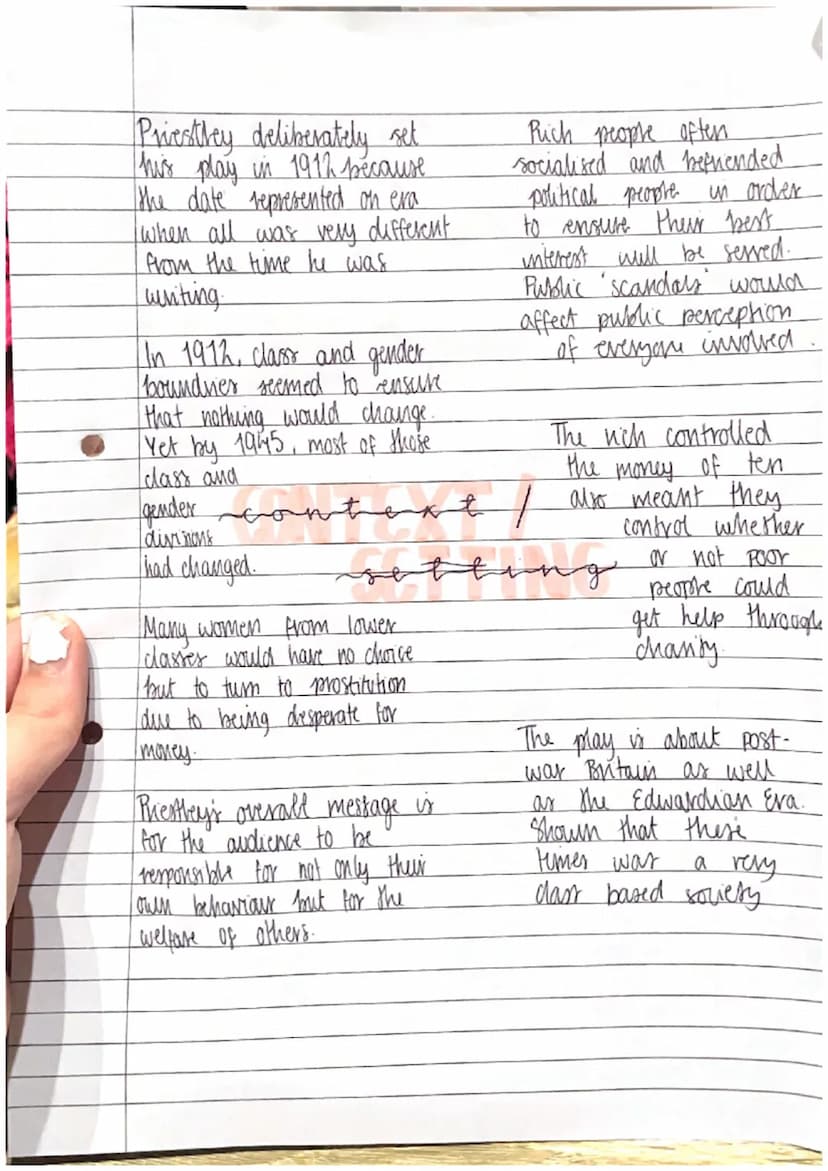 Priestley deliberately set
his play in 1912 because
the date represented an era
when all was very different
from the time he was
writing.
In 1912, class and gender
boundries seemed to ensure
that nothing would change.
Yet by 1945, most of those
class and
gender
divisions
had changed.
Many women from lower
classes would have no choice
but to turn to prostitution
due to being desperate for
money.
Priestley's overall message is
for the audience to be
responsible for not only their
own behaviour but for the
welfare of others.
CONTEXT /
SETTING
context /
setting
Rich people often
socialised and befriended
political people in order
to ensure their best
interest will be served.
Public 'scandals' would
affect public perception
of everyone involved.
The rich controlled
the money often
also meant they
control whether
or not poor
people could
get help through
charity.
The play is about post-
war Britain as well
as the Edwardian Era.
Shown that these
times was a very
class based society